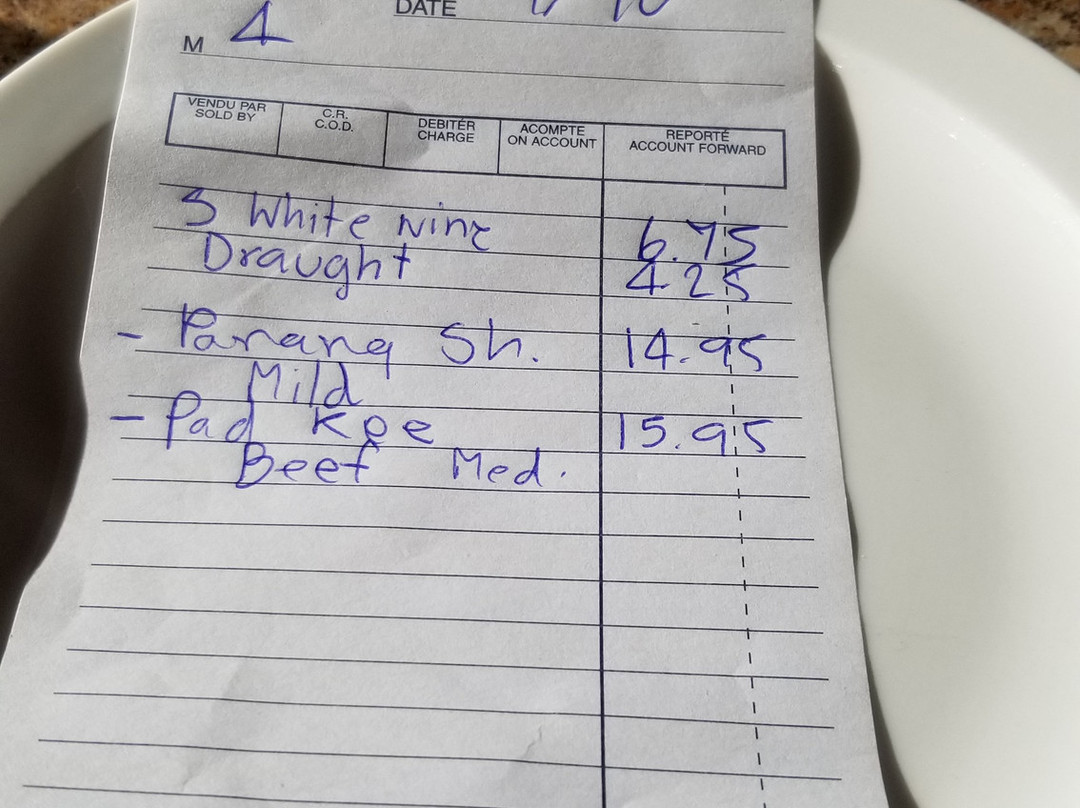 DATE
M 4
VENDU PAR SOLD BY
C.R. C.O.D.
DEBITÉR CHARGE
ACOMPTE ON ACCOUNT
REPORTÉ ACCOUNT FORWARD
S White wine 6.75
Draught 4.25
- Panang Sh. 14.95
Mild
- Pad Kee 15.95
Beef Med.